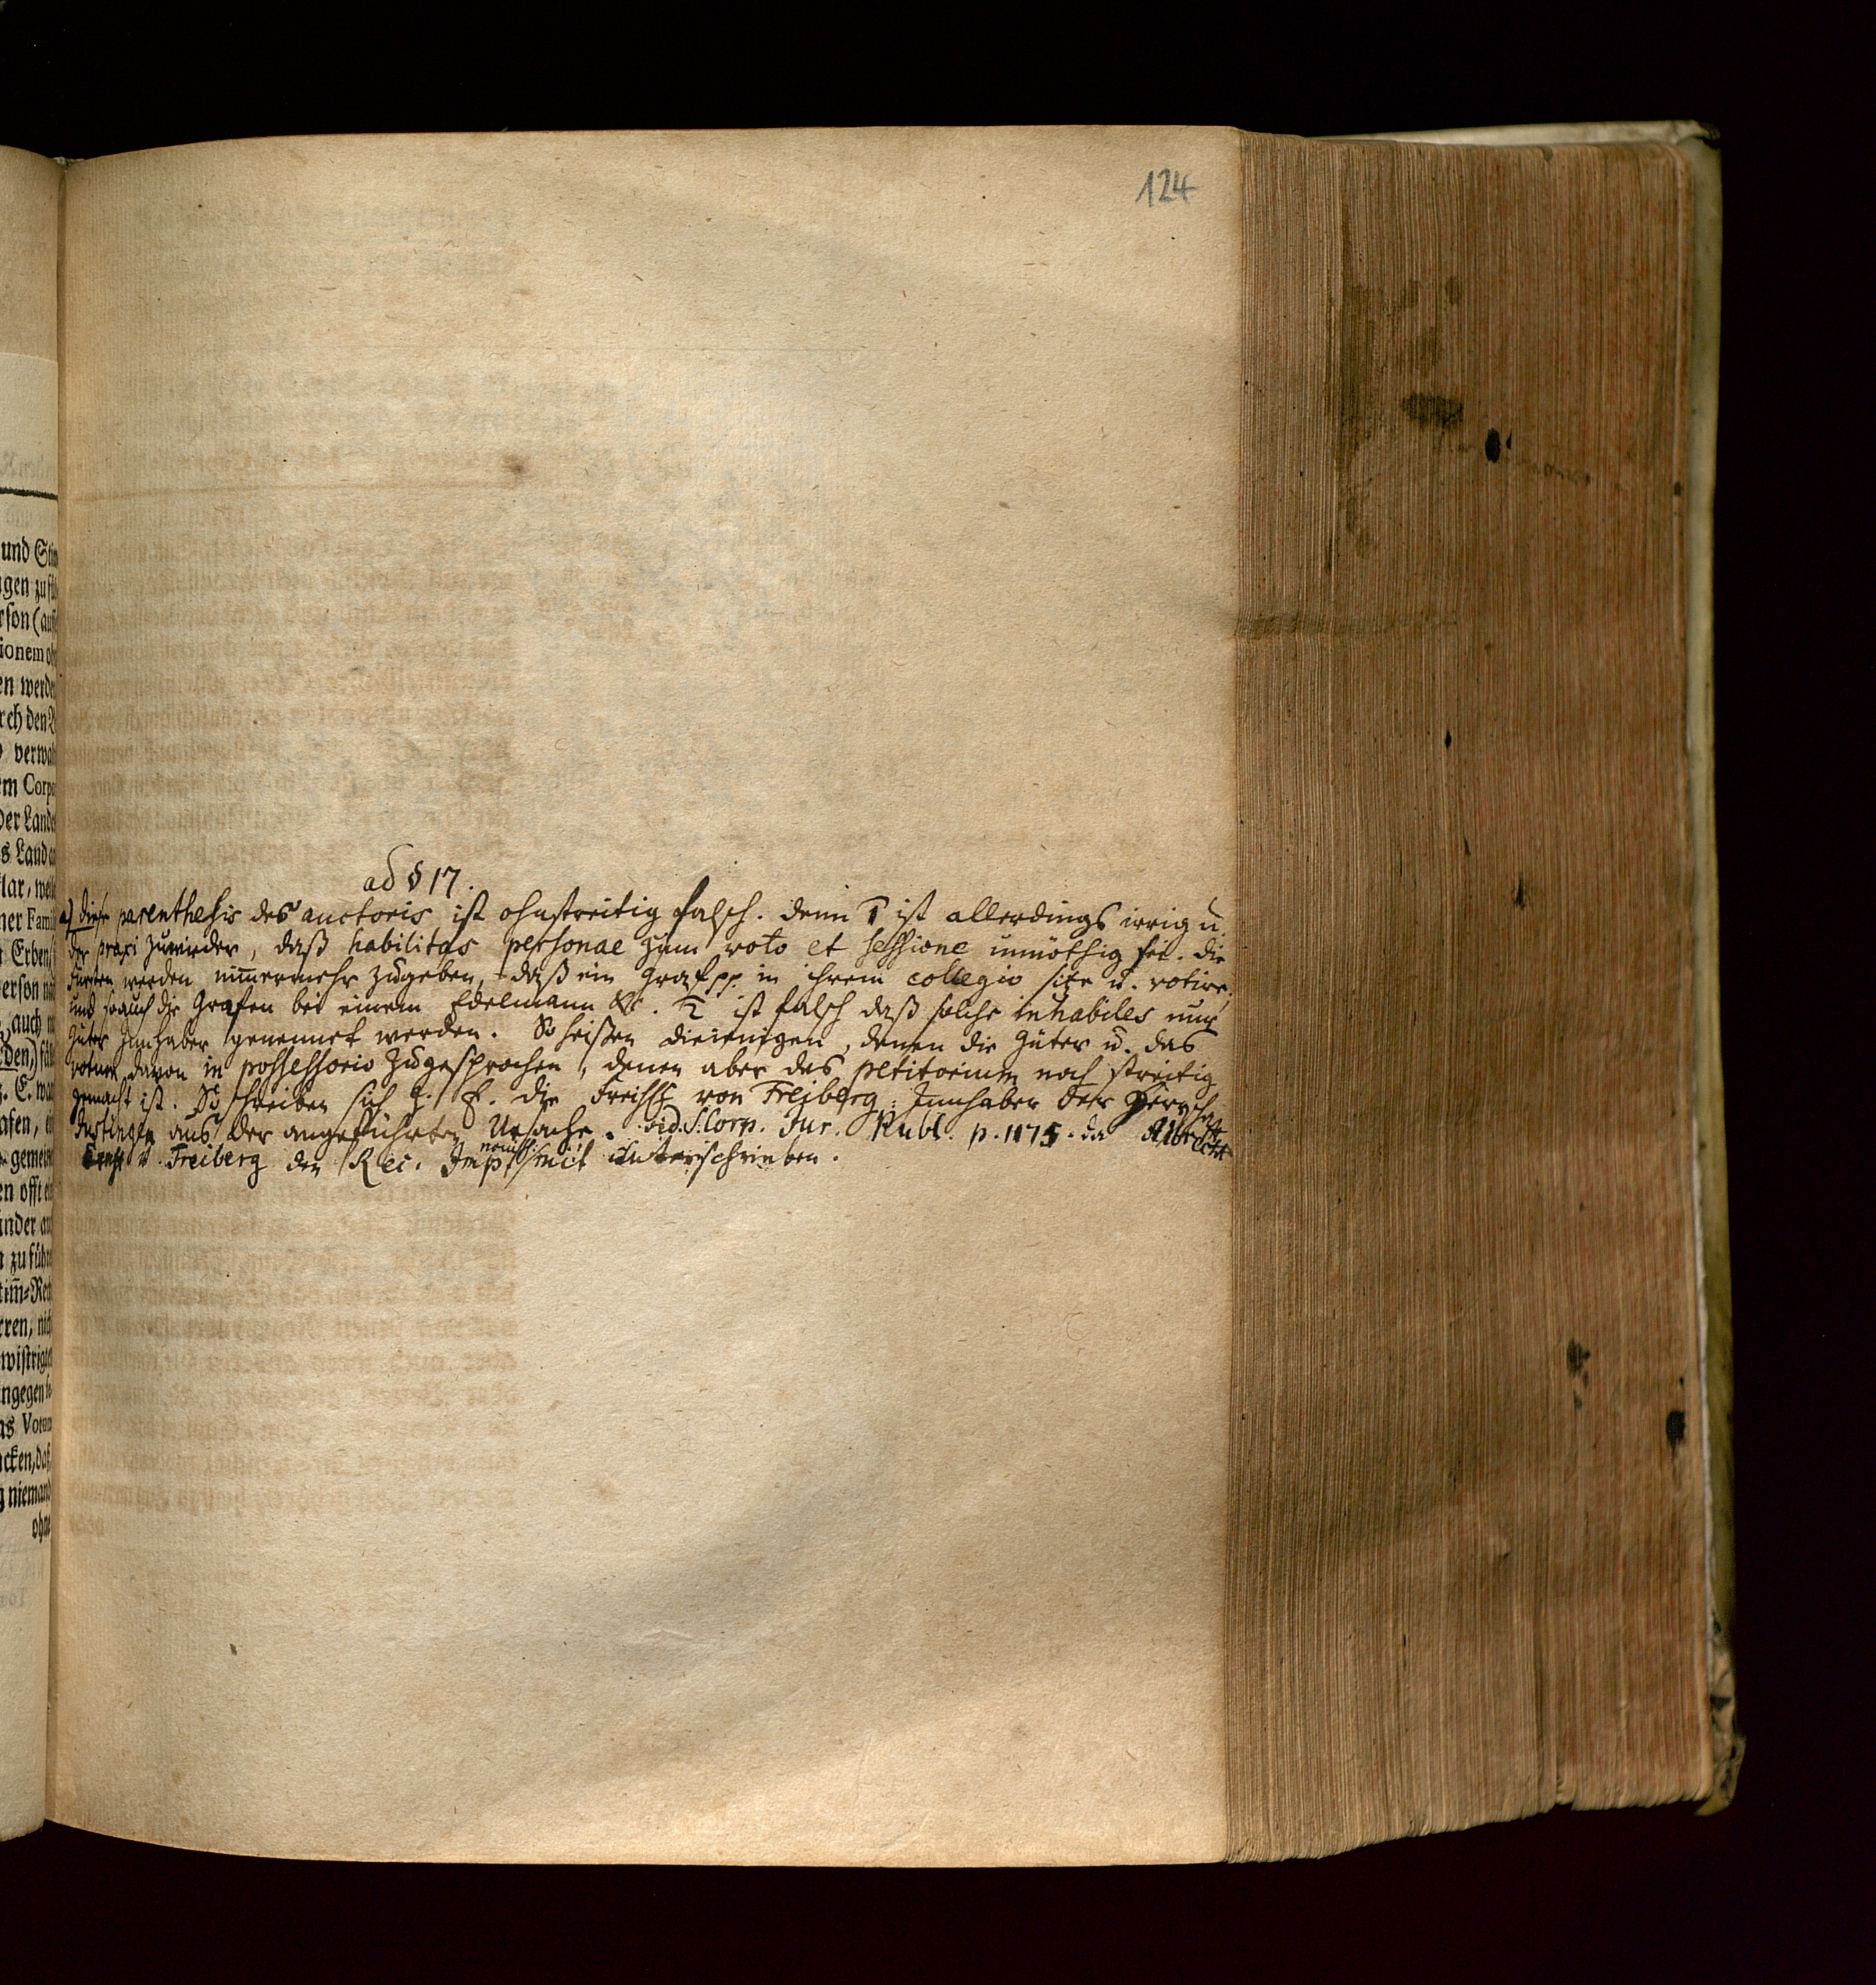 124
und Stim
gen zu füh
rson (auß
ionem ob
en werde
rch den
verwal
em Corpo
der Lande
s Land
lar, wel
ner Famil
Erben
erson
auch
den,)
z. E. wan
afen,
gemein
en offt
inder
zu führ
timm-Rec
rren, nich
wistrig
ngegen
as Votum
cken, daß
g niemand
ohne
ad § 17.
a) diese parenthesis des auctoris ist ohnstreitig falsch. denn 1 ist allerdings irrig u.
der praxi zuwider, daß habilitas personae zum voto et sessione unnöthig sei. die
Fürsten werden nimmermehr zugeben, daß ein Graf pp. in ihrem collegio sitze u. votire,
und so auch die Grafen bei einem Edelmann &c. 2 ist falsch daß solche inhabiles nur
Güter Innhaber genennet werden. So heißen dieienigen, denen die Güter u. das
votum davon in possessorio zugesprochen, denen aber das petitorium noch streitig
gemacht ist. So schreiben sich z. E. die Freihh von Freiberg, Innhaber der Herrschafft
Justingen aus der angeführten Ursache. vid. S. Corp. Jur. Publ. p. 1175. da Albrecht
Ernst v. Freiberg den Rec. Imp. noviss. mit unterschrieben.